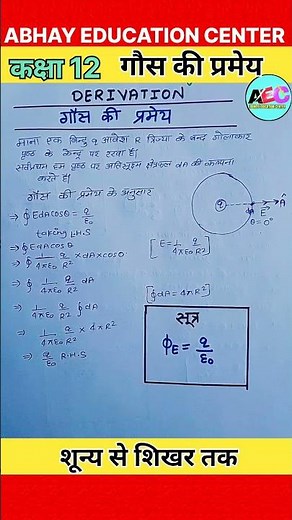 ABHAY EDUCATION CENTER
कक्षा 12 गौस की प्रमेय
AEC
DERIVATION
गौस की प्रमेय
माना एक बिन्दु q आवेश R त्रिज्या के बन्द गोलाकार
पृष्ठ के केन्द्र पर रखा है।
सर्वप्रथम हम पृष्ठ पर अतिसूक्ष्म क्षेत्रफल dA की कल्पना
करते हैं।
गौस की प्रमेय के अनुसार
⇒ ∮ EdA cosθ = q/ε₀
taking L.H.S
⇒ ∮ EdA cosθ [E = 1/4πε₀ q/R²]
⇒ ∮ 1/4πε₀ q/R² × dA × cos0°
⇒ ∮ 1/4πε₀ q/R² dA
⇒ 1/4πε₀ q/R² ∮dA [∮dA = 4πR²]
⇒ 1/4πε₀ q/R² × 4πR²
⇒ q/ε₀ R.H.S
q
E
A
θ=0°
सूत्र
ϕE = q/ε₀
शून्य से शिखर तक